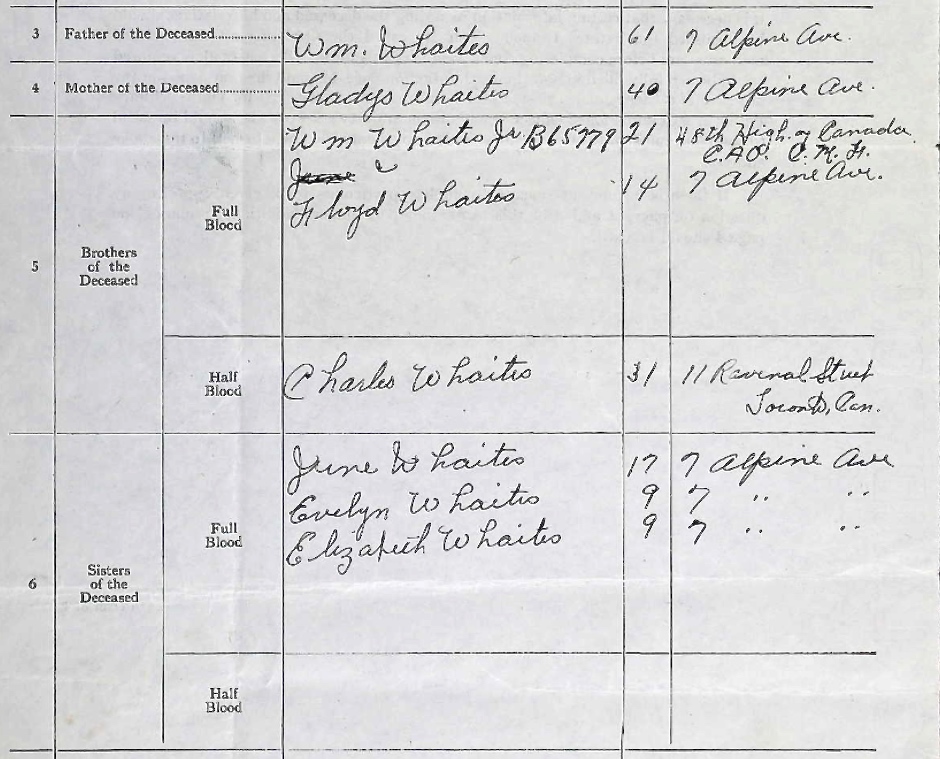 3 Father of the Deceased............... Wm. Whaites 61 7 Alpine Ave.
4 Mother of the Deceased............... Gladys Whaites 40 7 Alpine Ave.
5 Brothers of the Deceased
Full Blood
Wm Whaites Jr. B65779 21 48th High. of Canada
C.A.O. C.M.F.
June
Floyd Whaites 14 7 Alpine Ave.
Half Blood
Charles Whaites 31 11 Street
Toronto, Can.
6 Sisters of the Deceased
Full Blood
June Whaites 17 7 Alpine Ave
Evelyn Whaites 9 7 " "
Elizabeth Whaites 9 7 " "
Half Blood